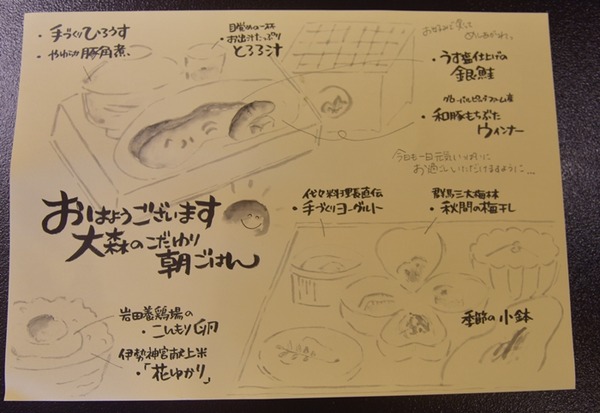 ・手づくりひろうす
・やわらか豚角煮、
・お出汁たっぷり
とろろ汁
お好みで炙って
めしあがれ。
・うす塩仕上げの
銀鮭
グローバルピッグファーム産
・和豚もちぶた
ウィンナー
今日も一日元気いっぱいに
お過ごしいただけますように…
おはようございます
大森のこだわり
朝ごはん
代々料理長直伝
・手づくりヨーグルト
群馬三大梅林
・秋間の梅干し
季節の小鉢
岩田養鶏場の
・こしもり卵
伊勢神宮献上米
・「花ゆかり」